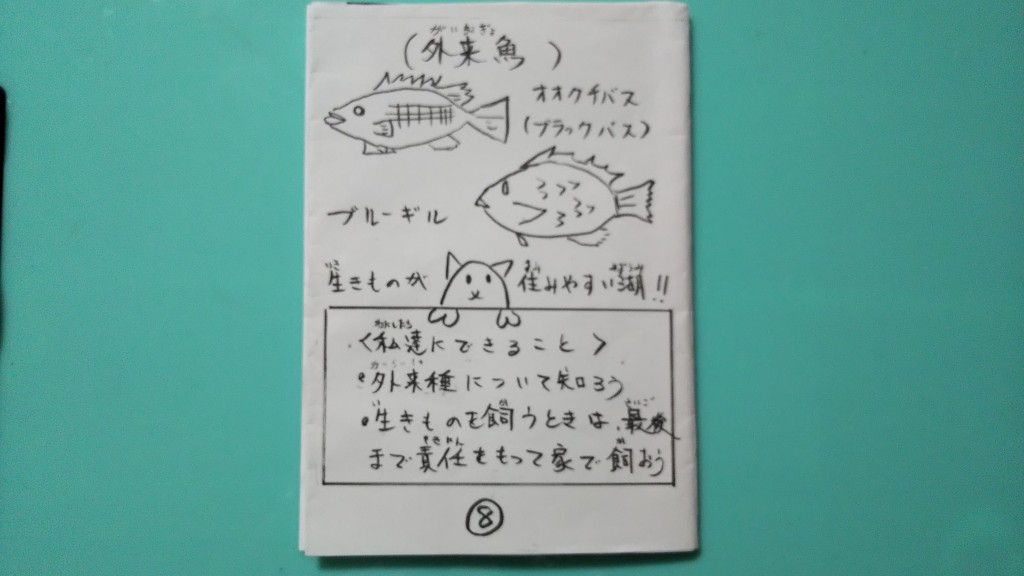 (外来魚)
オオクチバス
(ブラックバス)
ブルーギル
生きものが 住みやすい湖!!
<私達にできること>
•外来種について知ろう
•生きものを飼うときは、最後
まで責任をもって家で飼おう
⑧